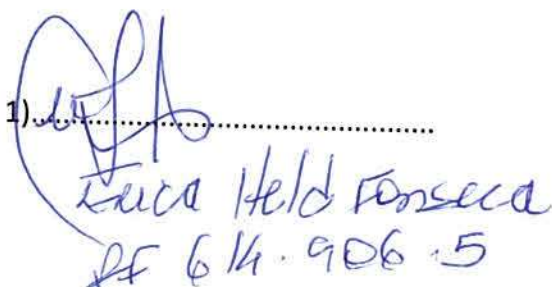 1)........................................
Erica Held Fonseca
RF 614.906.5